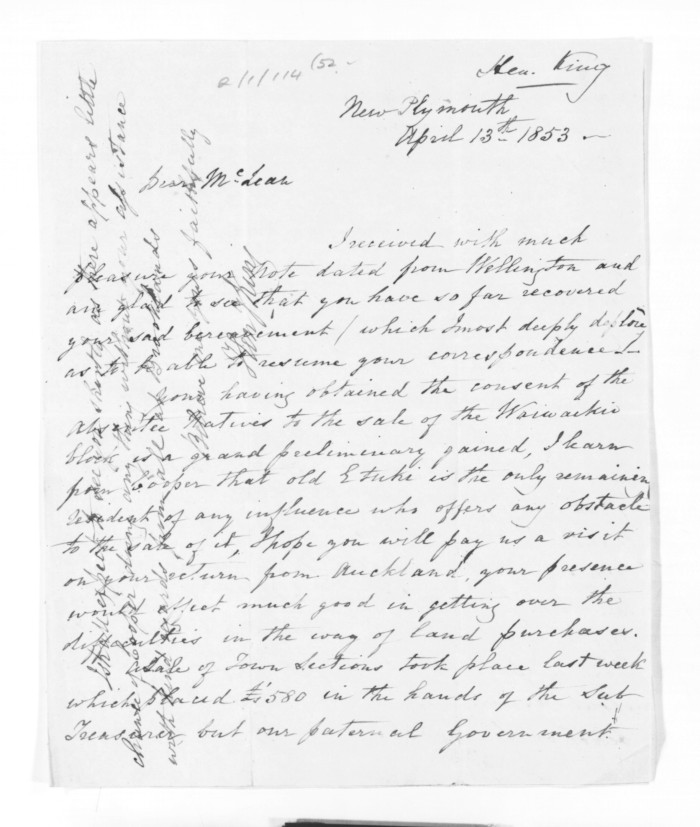 2/1/114 (52
Hen. King
New Plymouth
April 13th 1853
Dear McLean
I received with much
pleasure your Note dated from Wellington and
am glad to see that you have so far recovered
your sad bereavement (which I most deeply deplore)
as to be able to resume your correspondence.
Your having obtained the consent of the
absentee Natives to the sale of the Waiwakiu
block is a grand preliminary gained, I learn
from Cooper that old E tuki is the only remaining
resident of any influence who offers any obstacle
to the sale of it, I hope you will pay us a visit
on your return from Auckland, your presence
would effect much good in getting over the
difficulties in the way of land purchases.
Sale of Town Sections took place last week
which placed £1580 in the hands of the Sub
Treasurer but our paternal Government
I shall expect to see you shortly as there appears little
chance of Cooper doing anything without your assistance
with kind regards from all at Brooklands
believe me yours faithfully
Hen. King